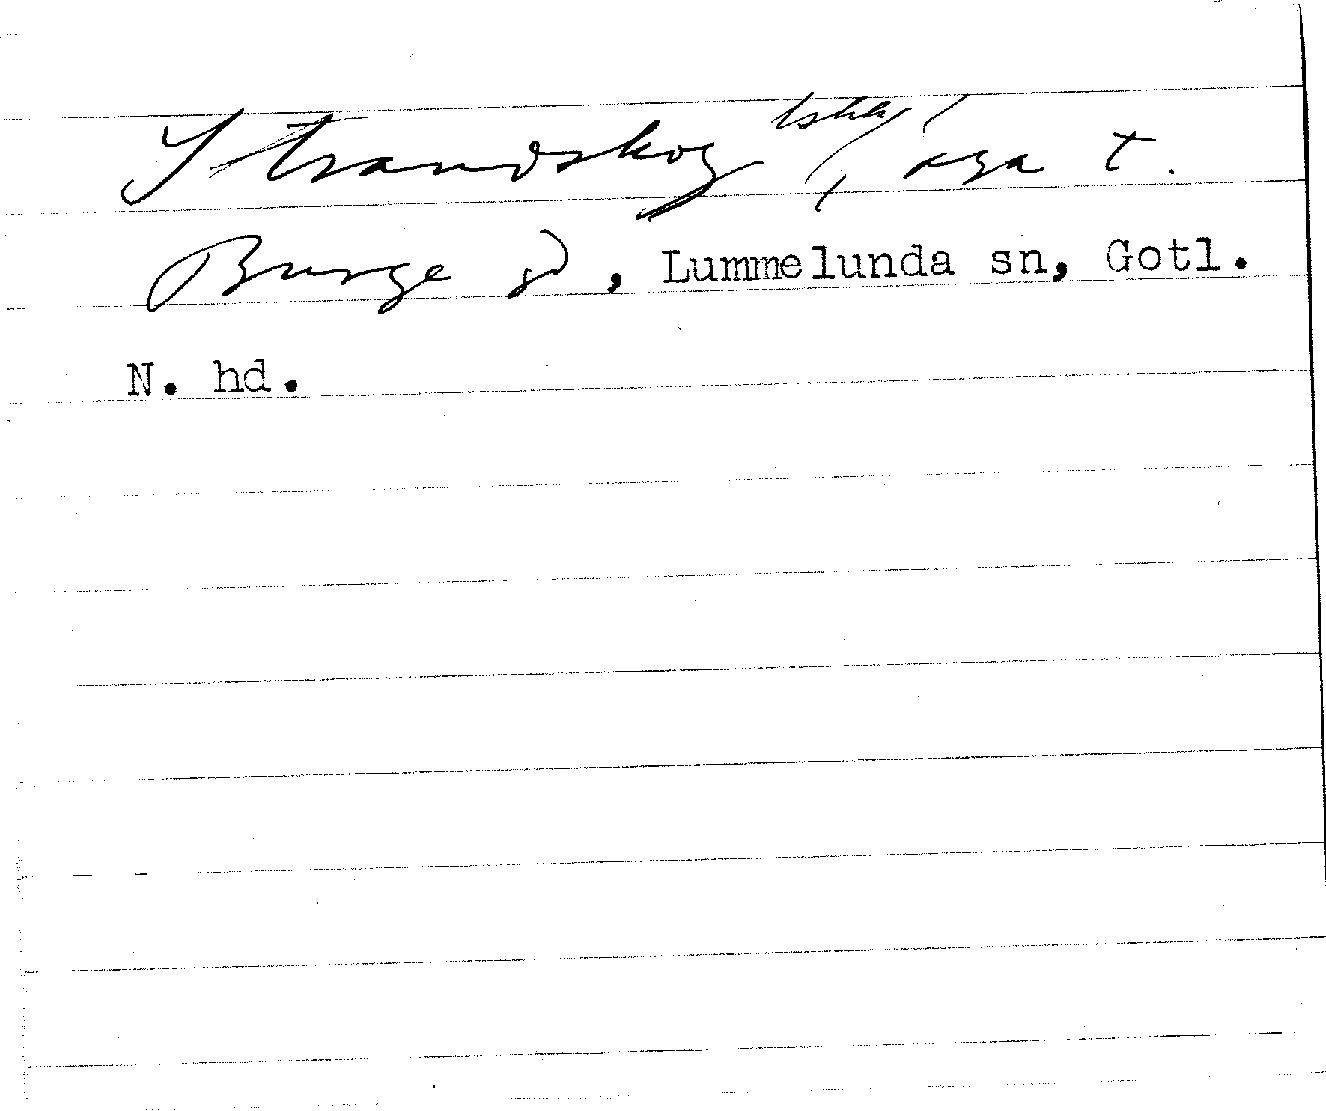 Strandskog, äga t.
Burge gd, Lummelunda sn, Gotl.
N. hd.